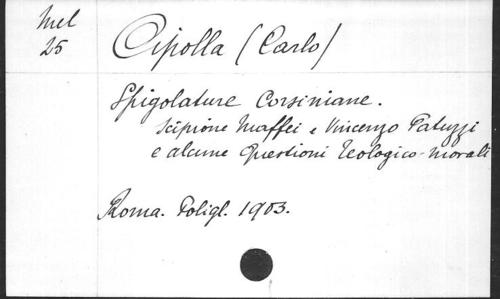 Mel
25
Cipolla (Carlo)
Spigolature Corsiniane.
Scipione Maffei e Vincenzo Patuzzi
e alcune Questioni Teologico-morali
Roma. Poligl. 1903.